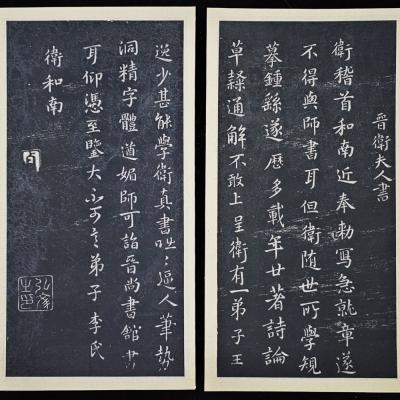 晉衛夫人書
衛稽首和南近奉勑寫急就章遂
不得與師書耳但衛隨世所學規
摹鍾繇遂歷多載年廿著詩論
草隸通解不敢上呈衛有一弟子王
逸少甚能學衛真書咄咄逼人筆勢
洞精字體遒媚師可詣晉尚書館書
耳仰憑至鑒大不可言弟子李氏
衛和南